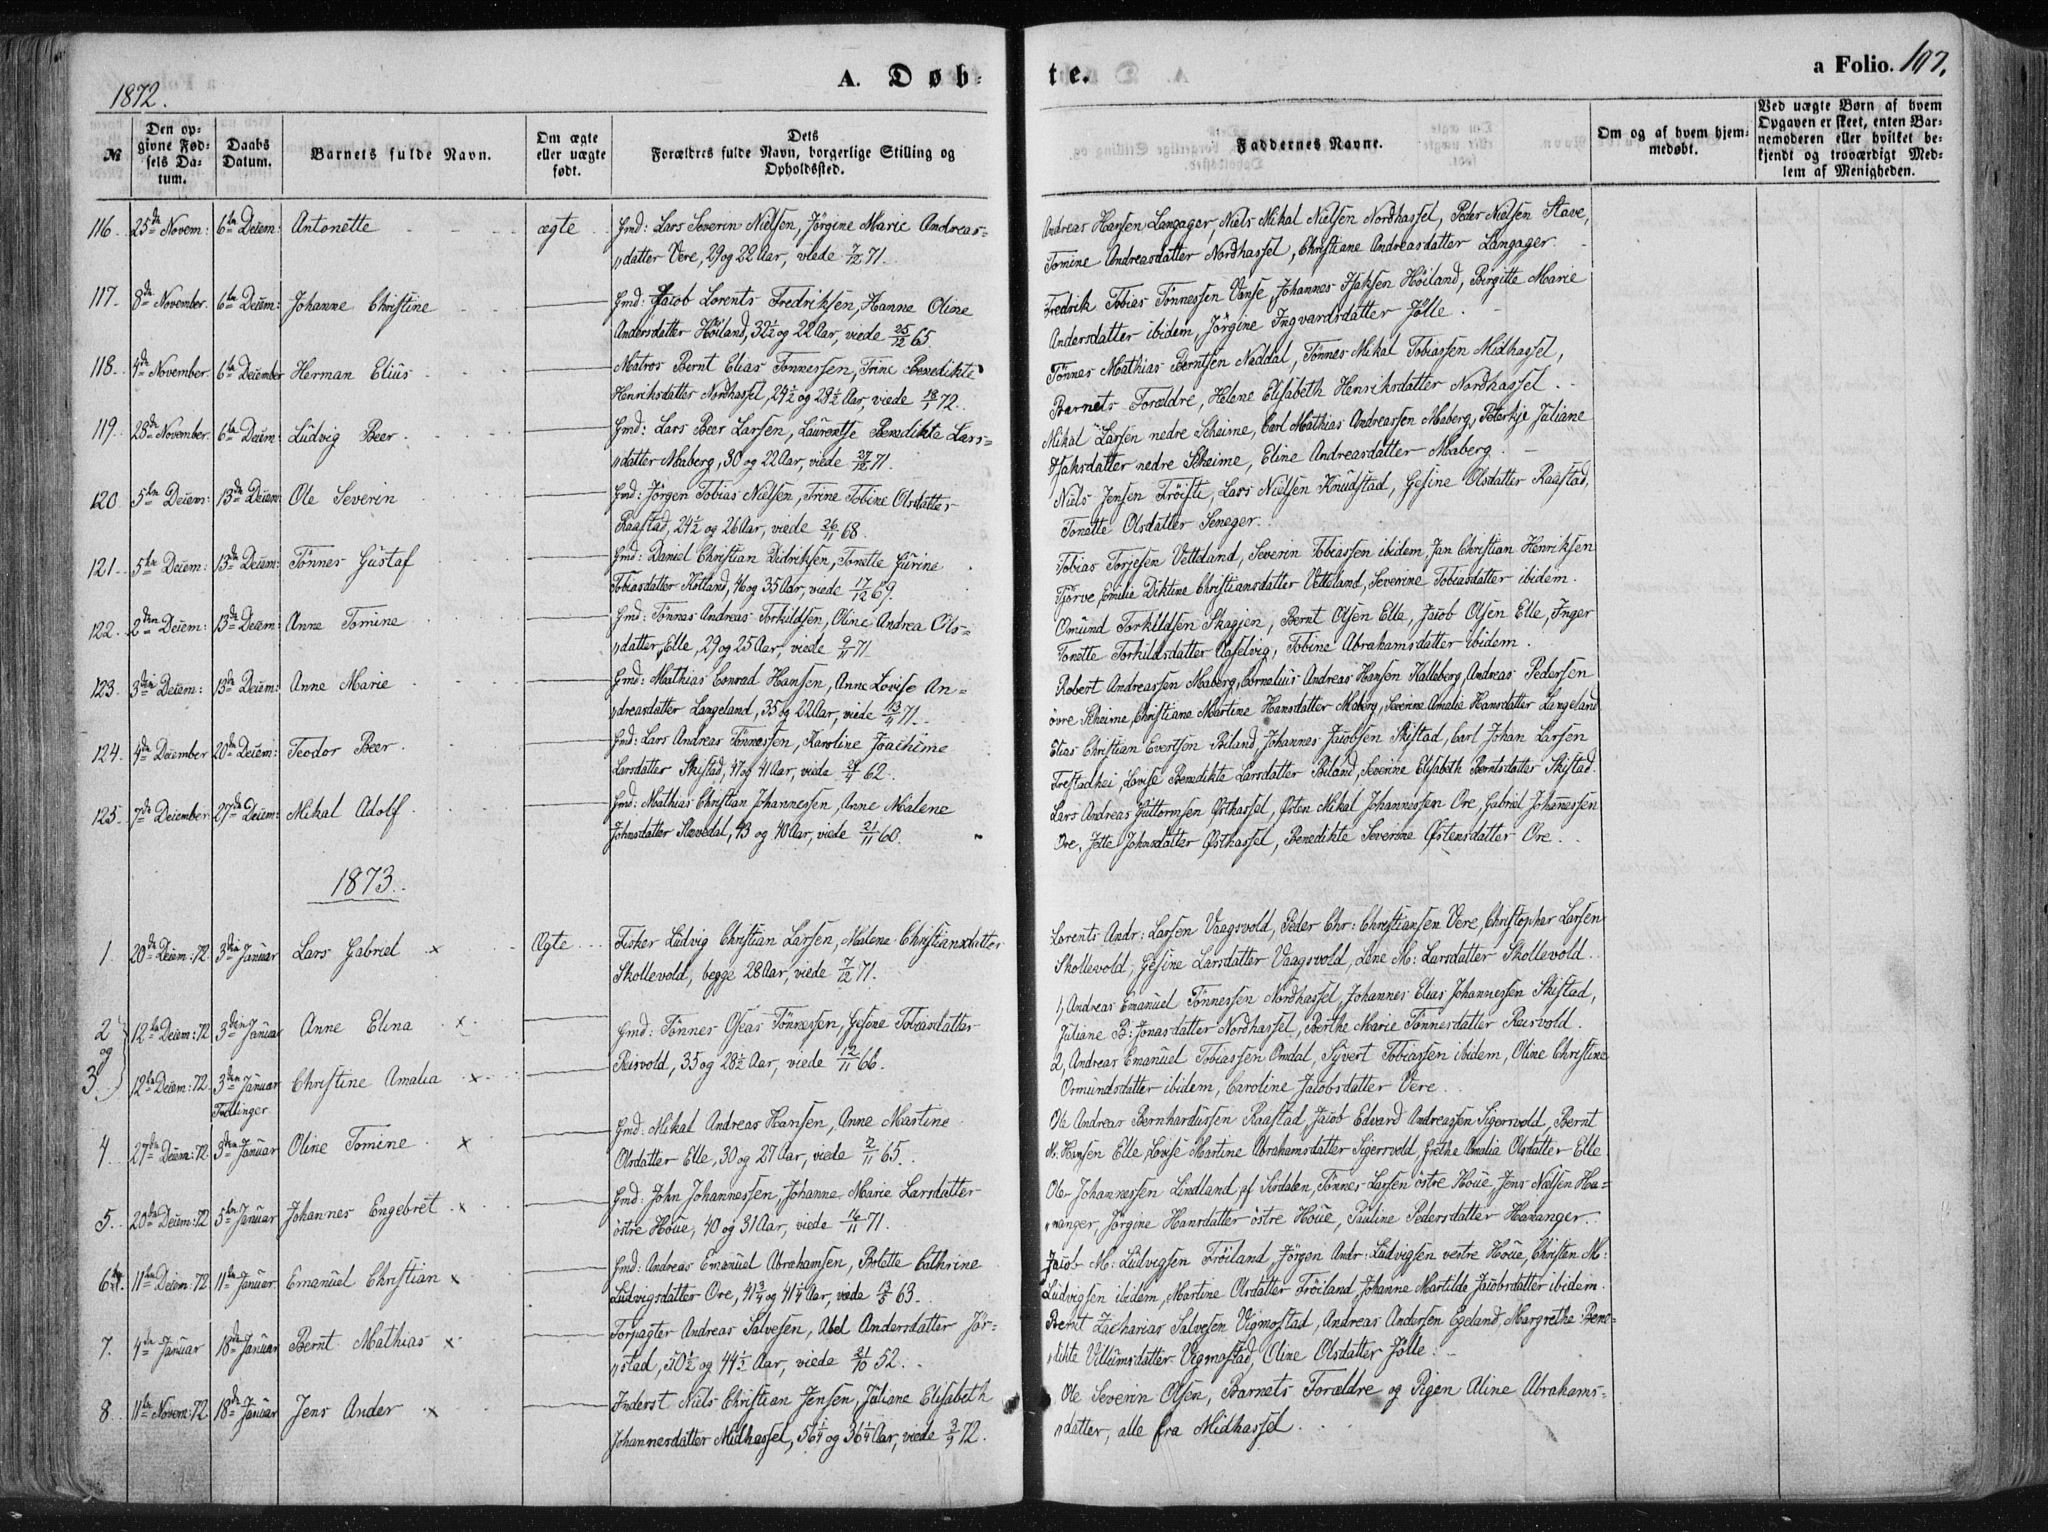 1872.
A. Døb-
te.
a Folio. 107.
№
Den opgivne Fødsels Datum.
Daabs Datum.
Barnets fulde Navn.
Om ægte eller uægte født.
Dets Forældres fulde Navn, borgerlige Stilling og Opholdssted.
Faddernes Navne.
Om og af hvem hjemmedøbt.
Ved uægte Børn af hvem Opgaven er skeet, enten Barnemoderen eller hvilket bekjendt og troværdigt Medlem af Menigheden.
116. 25de Novem: 6te Decem: Antonette ægte Gmd: Lars Severin Nielsen, Jörgine Marie Andreas= Andreas Hansen Langager, Niels Mikal Nielsen Nordhassel, Peder Nielsen Stave,
"datter Vere, 29 og 22 Aar, viede 7/12 71. Tomine Andreasdatter Nordhassel, Christiane Andreasdatter Langager.
117. 8de November. 6te Decem: Johanne Christine Gmd: Jacob Lorents Fredriksen, Hanne Oline Fredrik Tobias Tönnessen Vanse, Johannes Isaksen Höiland, Birgitte Marie
Andersdatter Höiland, 32½ og 22 Aar, viede 25/12 65. Andersdatter ibidem, Jörgine Ingvardsdatter Jölle.
118. 4de November. 6te December Herman Elius Matros Bernt Elias Tönnessen, Trine Benedikte Tönnes Mathias Berntsen Neddal, Tönnes Mikal Tobiassen Midhassel,
Henriksdatter Nordhassel, 24½ og 29½ Aar, viede 18/1 72. Barnets Forældre, Helene Elisabeth Henriksdatter Nordhassel.
119. 28de November. 6te Decem: Ludvig Beer Gmd: Lars Beer Larsen, Laurentse Benedikte Lars= Mikal Larsen nedre Skeime, Carl Mathias Andreassen Maberg, Peterkje Juliane
"datter Maberg, 30 og 22 Aar, viede 27/12 71. Isaksdatter nedre Skeime, Eline Andreasdatter Maberg.
120 5te Decem: 13de Decem: Ole Severin Gmd: Jörgen Tobias Nielsen, Trine Tobine Olsdatter Niels Jensen Fröiste, Lars Nielsen Knudstad, Gesine Olsdatter Raastad,
Raastad, 24½ og 26 Aar, viede 26/11 68. Tonette Olsdatter Seneger.
121. 5te Decem: 13de Decem: Tönnes Gustaf Gmd: Daniel Christian Didriksen, Tonette Gurine Tobias Torjesen Vetteland, Severin Tobiassen ibidem, Jan Christian Henriksen
Tobiasdatter Hetland, 46 og 35 Aar, viede 17/12 69. Tjörve, Emilie Diktine Christiansdatter Vetteland, Severine Tobiasdatter ibidem.
122. 2den Decem: 13de Decem: Anne Tomine Gmd: Tönnes Andreas Torkildsen, Oline Andrea Ols= Omund Torkildsen Skagjen, Bernt Olsen Elle, Jacob Olsen Elle, Inger
"datter, Elle, 29 og 25 Aar, viede 9/11 71 Tonette Torkildsdatter Aaselvig, Tobine Abrahamsdatter ibidem.
123. 3die Decem: 13de Decem: Anne Marie Gmd: Mathias Conrad Hansen, Anne Lovise An= Robert Andreassen Maberg, Cornelius Andreas Hansen Kalleberg, Andreas Pedersen
"dreasdatter Langeland, 35 og 22 Aar, viede 13/4 71. övre Skeime, Christiane Martine Hansdatter Maberg, Severine Amalie Hansdatter Langeland
124. 4de December 20de Decem: Teodor Beer Gmd: Lars Andreas Tönnessen, Karoline Joachime Elias Christian Evertsen Biland, Johannes Jacobsen Skistad, Carl Johan Larsen
Larsdatter Skistad, 47 og 41 Aar, viede 24/4 62. Frestadhei, Lovise Benedikte Larsdatter Biland, Severine Elisabeth Berntsdatter Skistad.
125. 7de December 27de Decem: Mikal Adolf Gmd: Mathias Christian Johannessen, Anne Malene Lars Andreas Guttormsen Østhassel, Østen Mikal Johannessen Ore, Gabriel Johanessen
Johnsdatter Slevedal, 43 og 40 Aar, viede 21/11 60. Ore, Jette Johnsdatter Østhassel, Benedikte Severine Østensdatter Ore.
1873.
1. 20de Decem: 72 3die Januar Lars Gabriel x Ægte Fisker Ludvig Christian Larsen, Malene Christiansdatter Lorents Andr: Larsen Vaagsvold, Peder Chr: Christiansen Vere, Christopher Larsen
Skollevold, begge 28 Aar, viede 7/12 71. Skollevold, Gesine Larsdatter Vaagsvold, Lene M: Larsdatter Skollevold.
2 og 12te Decem: 72 3die Januar Anne Elina x Gmd: Tönnes Oseas Tönnessen, Gesine Tobiasdatter 1, Andreas Emanuel Tönnessen Nordhassel, Johannes Elias Johannessen Skistad,
Reisvold, 35 og 28½ Aar, viede 12/11 66. Juliane B: Jonasdatter Nordhassel, Berthe Marie Tönnesdatter Reisvold.
3. 12te Decem: 72 3die Januar Tvillinger Christine Amalia x 2, Andreas Emanuel Tobiassen Omdal, Syvert Tobiassen ibidem, Oline Christine
Ormundsdatter ibidem, Caroline Jacobsdatter Vere.
4 27de Decem: 72 3die Januar Oline Tomine x Gmd: Mikal Andreas Hansen, Anne Martine Ole Andreas Bernhardussen Raastad, Jacob Edvard Andreassen Sigersvold, Bernt
Olsdatter Elle, 30 og 27 Aar, viede 2/11 65. N: Hansen Elle, Lovise Martine Abrahamsdatter Sigersvold, Grethe Amalia Olsdatter Elle
5. 20de Decem: 72 5te Januar Johannes Engebret x Gmd: John Johannessen, Johanne Marie Larsdatter Ole Johannessen Lindland af Sirdalen, Tönnes Larsen östre Houe, Jens Nielsen Ha=
östre Houe, 40 og 31 Aar, viede 16/11 71. "nanger, Jörgine Hansdatter östre Houe, Pauline Pedersdatter Hananger.
6. 11te Decem: 72 11te Januar Emanuel Christian x Gmd: Andreas Emanuel Abrahamsen, Bolette Cathrine Jacob M: Ludvigsen Fröiland, Jörgen Andr: Ludvigsen vestre Houe, Christen M:
Ludvigsdatter Ore, 41¾ og 41¼ Aar, viede 13/5 63. Ludvigsen ibidem, Martine Olsdatter Fröiland, Johanne Martilde Jacobsdatter ibidem.
7. 4de Januar 18de Januar Bernt Mathias x Forpagter Andreas Salvesen, Abel Andersdatter Jör= Bernt Zacharias Salvesen Vigmostad, Andreas Andersen Egeland, Margrethe Bene=
"stad, 50½ og 44½ Aar, viede 21/10 52. "dikte Villumsdatter Vigmostad, Oline Olsdatter Jölle.
8. 11te Novem: 72 18de Januar Jens Ander x Inderst Niels Christian Jensen, Juliane Elisabeth Ole Severin Olsen, Barnets Forældre og Pigen Aline Abrahams=
Johannesdatter Midhassel, 56¼ og 36¼ Aar, viede 3/9 72. "datter, alle fra Midhassel.